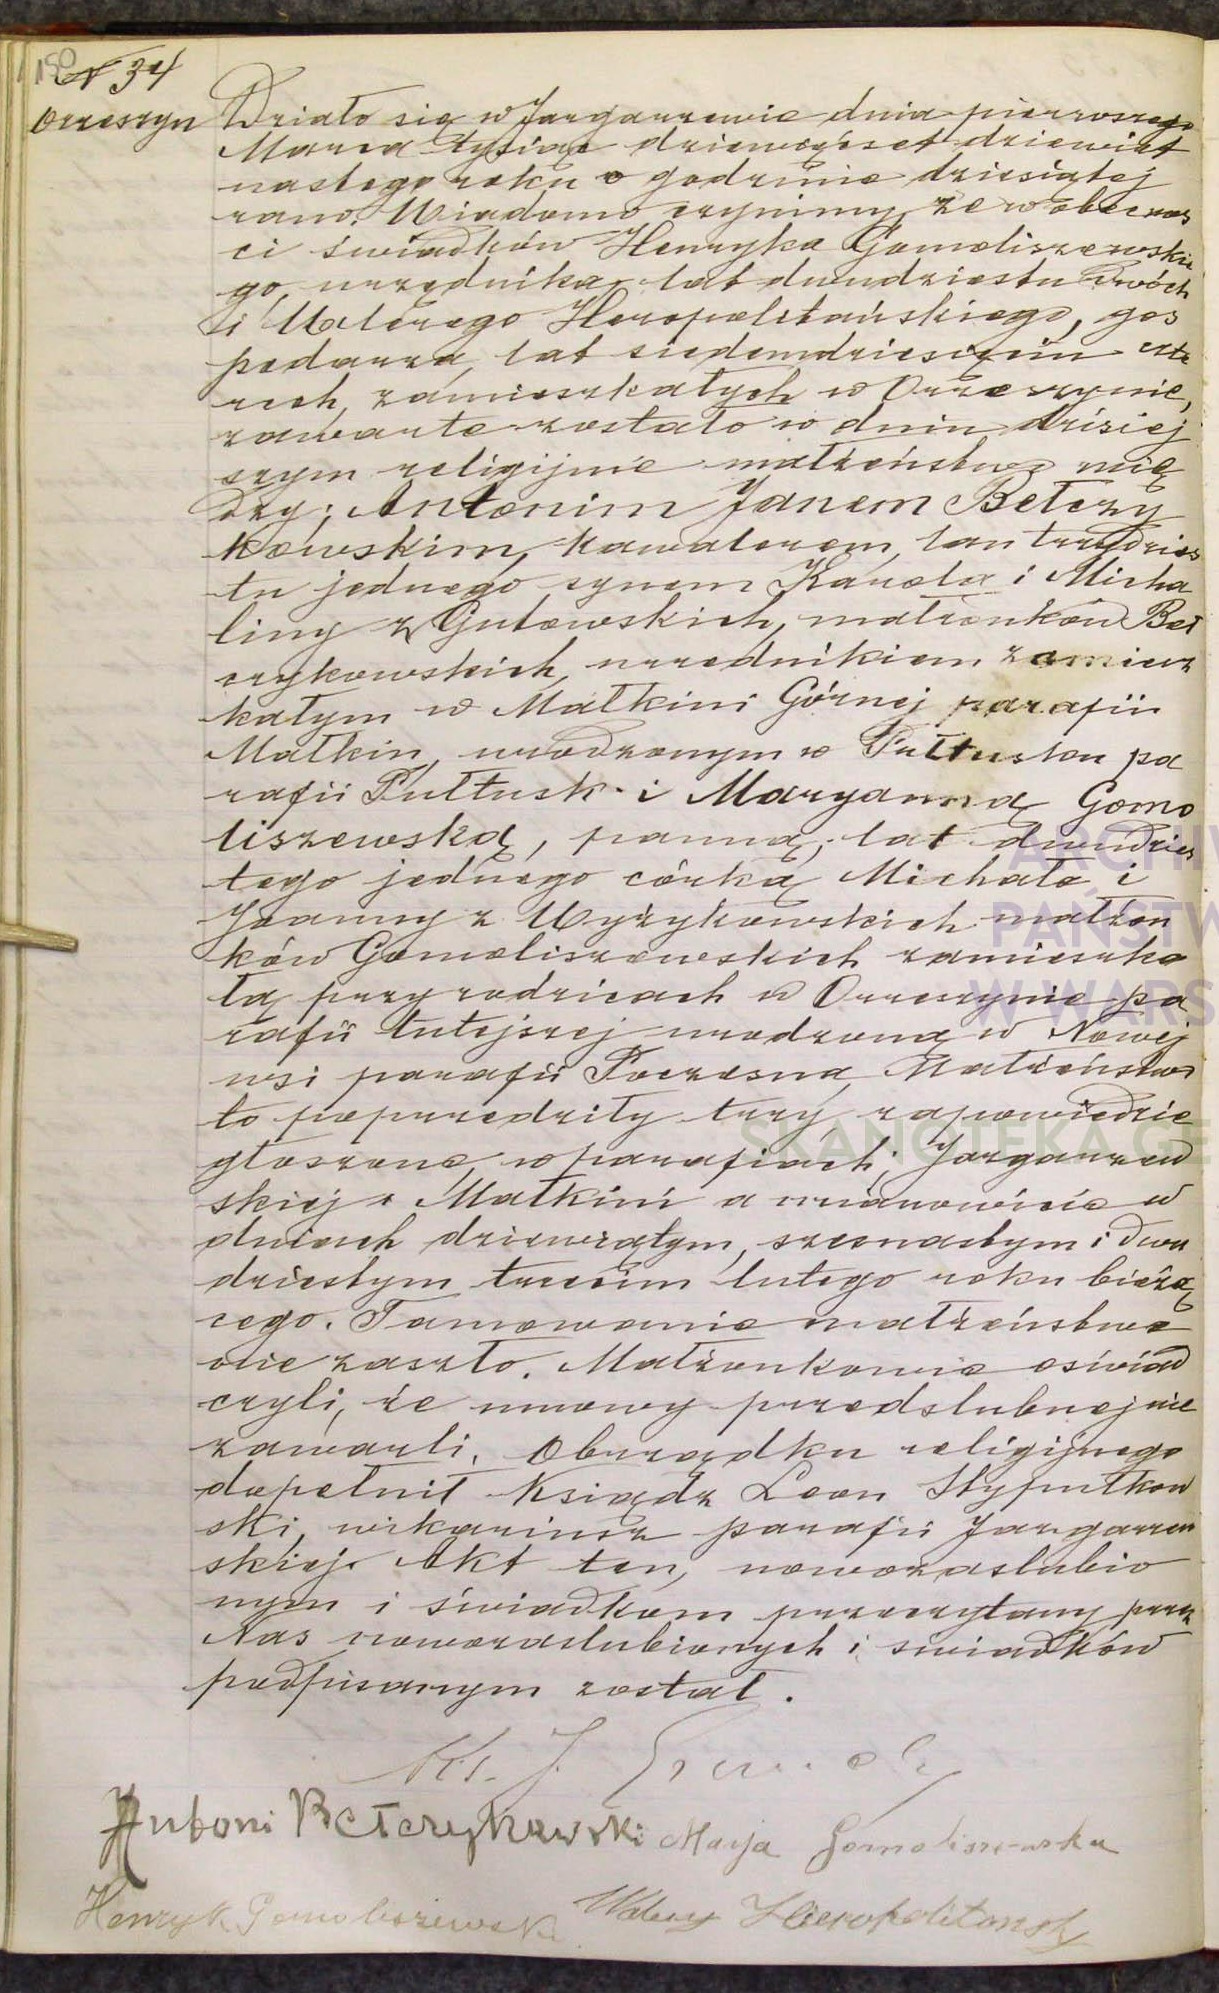 150
N 34
Orzeszyn
Działo się w Jargarzewie dnia pierwszego
Marca tysiąc dziewięćset dziewięt
nastego roku o godzinie dziesiątej
rano. Wiadomo czynimy, że w obecnoś
ci świadków Henryka Gomoliszewskie
go, urzędnika, lat dwudziestu dwóch
i Walerego Hieropolitańskiego, gos
podarza, lat siedemdziesięciu czte
rech, zamieszkałych w Orzeszynie,
zawarte zostało w dniu dzisiej
szym religijnie małżeństwo mię
dzy: Antonim Janem Bełczy
kowskim, kawalerem, lat trzydzies
tu jednego synem Karola i Micha
liny z Gutowskich, małżonków Beł
czykowskich, urzędnikiem zamiesz
kałym w Małkini Górnej parafii
Małkin, urodzonym w Pułtusku pa
rafii Pułtusk i Maryanną Gomo
liszewską, panną, lat dwudzies
tego jednego córką Michała i
Joanny z Wyżykowskich małżon
ków Gomoliszewskich zamieszka
łą przy rodzicach w Orzeszynie pa
rafii tutejszej urodzoną w Nowej
wsi parafii Poczesna, Małżeństwo
to poprzedziły trzy zapowiedzie
głoszone w parafiach; Jargarzew
skiej i Małkini a mianowicie w
dniach dziewiątym, szesnastym i dwu
dziestym trzecim lutego roku bieżą
cego. Tamowanie małżeństwa
nie zaszło. Małżonkowie oświad
czyli, że umowy przedslubnej nie
zawarli. Obrządku religijnego
dopełnił Ksiądz Leon Stypułkow
ski, wikariusz parafii Jargarzew
skiej. Akt ten, nowozaslubio
nym i świadkom przeczytany przez
Nas nowozaslubionych i świadków
podpisanym został.
Ks. J.
Antoni Bełczykowski Marja Gomoliszewska
Henryk Gomoliszewski Walery Hieropolitański
ARCHIW
PAŃSTW
W WARS
SKANOTEKA GE